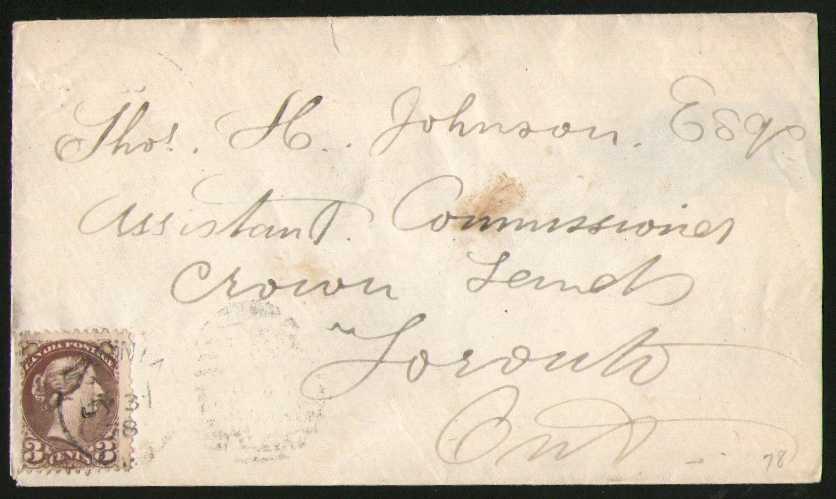 Thos. H. Johnson. Esqr
Assistant Commissioner
Crown Lands
Toronto
Ont.
CANADA POSTAGE
3 CENTS 3
78